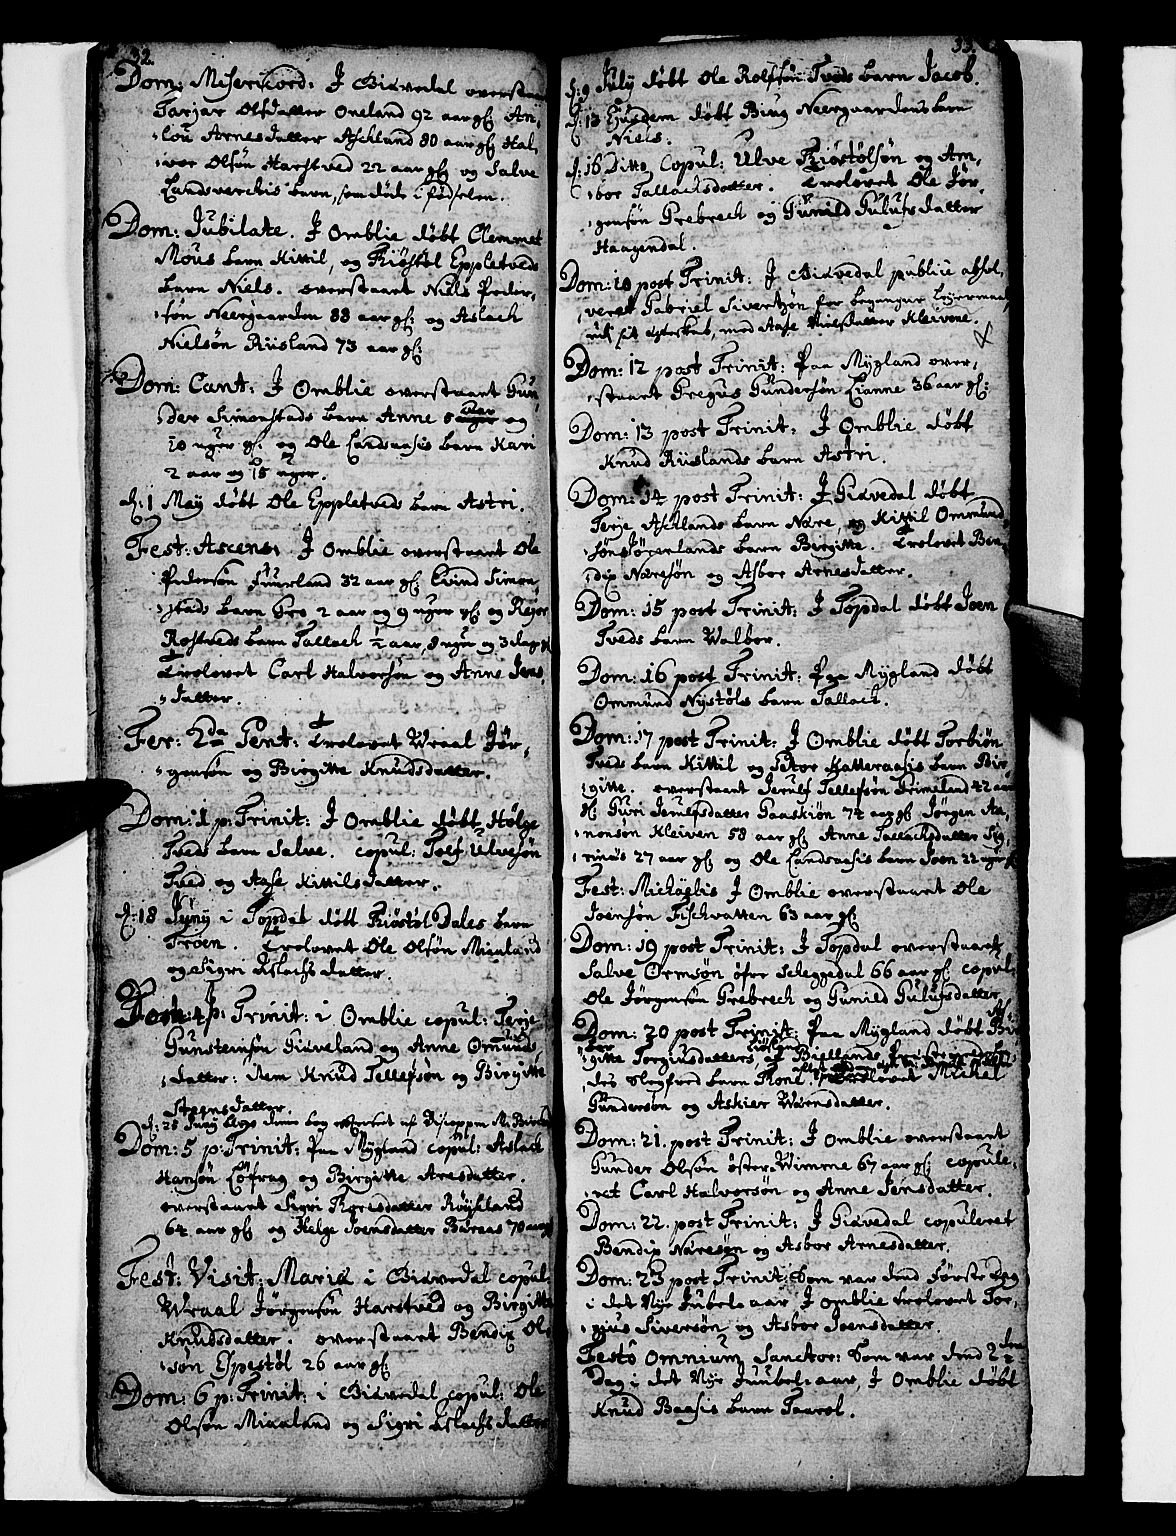 32.
Dom: Misericord: J Giøvedal overstaaet
Tarjer Olsdatter Oneland 92 aar gl: An,
lou Arnesdatter Aschlund 80 aar gl: Hal,
vor Olsøn Harstved 22 aar gl: og Salve
Landsverchis barn, som døde i fødselen.
Dom: Jubilate. J Omblie døbt Clemmet
Møus barn Kittil, og Kiøstol Eppletveds
barn Niels. overstaaet Niels Peder,
søn Neergaarden 88 aar gl: og Aslach
Nielsøn Riisland 73 aar gl:
Dom: Cant: J Omblie overstaaet Gun,
der Simonstads barn Anne 8 aar og
10 uger gl: og Ole Landsaasis barn Kari
2 aar og 15 uger.
d: 1 May døbt Ole Eppletveds barn Astri.
Fest: Ascens: J Omblie overstaaet Ole
Pedersøn Fuurland 32 aar gl: Evind Simon,
stads barn Gro 2 aar og 9 uger gl: og Reyer
Rostveds barn Tallach ½ aar, 8 uger og 3 dage gl
Trolovet Carl Halvorsøn og Anne Jens,
datter.
Fer: 2da Pent: Trolovet Wraal Jør,
gensøn og Birgitte Knudsdatter.
Dom: 1 p: Trinit: J Omblie døbt Hølge
Tveds barn Salve. copul: Tolf Ulvesøn
Tved og Aase Kittilsdatter.
d: 18 Juny i Topdal døbt Kiøstol Dales barn
Troen. Trolovet Ole Olsøn Mieland
og Sigri Aslachsdatter.
Dom: 4 p: Trinit: i Omblie copul: Terje
Gunsteinsøn Giøveland og Anne Omunds
datter: Item Knud Tellefsøn og Birgitte
Steensdatter.
d: 25 Juny blev denne bog efterseet af Bisoppen M: Bircherod
Dom: 5 p: Trinit: Paa Mygland copul: Aslach
Hansøn Løfrag og Birgitte Aresdatter.
overstaaet Sigri Toresdatter Røysland
64 aar gl: og Helge Joensdatter Buraas 70 aar gl
Fest: Visit: Mariæ i Giøvedal copul:
Wraal Jørgensøn Harstved og Birgitte
Knudsdatter. overstaaet Bendix Ole
søn Espestøl 26 aar gl:
Dom: 6 p: Trinit: i Giøvedal copul: Ole
Olsøn Mieland og Sigri Aslachsdatter
33.
d: 9 July døbt Ole Rolfsøn Tveds barn Jacob.
d: 13 Ejusdem døbt Biug Neergaardens barn
Niels.
d: 16 Ditto Copul: Ulve Kiøstølsøn og Am,
bor Tallachsdatter. Trolovet Ole Jør,
gensøn Grebrech og Gunild Gulufsdatter
Haagendal.
Dom: 10 post Trinit: J Giøvedal publice absol,
veret Gabriel Sivertsøn for begangne Leyermaal
med Aase Nielsdatter Kleivene.
Dom: 12 post Trinit: Paa Mygland over,
staaet Gregus Gundersøn Lianne 36 aar gl:
Dom: 13 post Trinit: J Omblie døbt
Knud Riislands barn Astri.
Dom: 14 post Trinit: J Giøvedal døbt
Terje Aschlands barn Nære og Kittil Ommund
søns Jørenlands barn Birgitte. Trolovet Ben,
dix Næresøn og Asbor Arnesdatter.
Dom: 15 post Trinit: J Topdal døbt Joen
Tveds barn Walbor.
Dom: 16 post Trinit: Paa Mygland døbt
Ommund Nystøls barn Tallach.
Dom: 17 post Trinit: J Omblie døbt Torbiøn
Tveds barn Kittil og Peter Katteraasis barn Bir
gitte. overstaaet Jerulf Tellefsøn Grimeland 42 aar
gl: Guri Jerulfsdatter Gaaskiøn 74 aar gl: Jørgen Aa,
nonsøn Kleiven 58 aar gl: Anne Tallachsdatter Sig
rinas 27 aar gl: og Ole Landsaasis barn Joen 22 uger gl
Fest: Michaelis J Omblie overstaaet Ole
Joensøn Fischvatten 63 aar gl:
Dom: 19 post Trinit: J Topdal overstaaet
Salve Ormsøn øfre Seleggedal 66 aar gl: copul:
Ole Jørgensøn Grebrech og Gunild Gulufsdatter
Dom: 20 post Trinit: Paa Mygland døbt Bir
gitte Torgiusdatters
des Slegfred barn Tone. Trolovet Michel
Gundersøn og Askier Wærnsdatter.
Dom: 21. post Trinit: J Omblie overstaaet
Gunder Olsøn øster Wimme 67 aar gl: copule,
ret Carl Halvorsøn og Anne Jensdatter.
Dom: 22. post Trinit: J Giøvedal copuleret
Bendix Næresøn og Asbor Arnesdatter.
Dom: 23 post Trinit: Som var dend Første dag
i det Nye Jubel-aar J Omblie trolovet Tor,
gius Siversøn og Asbor Joensdatter.
Festo Omnium Sanctor: Som var dend 2den
Dag i det Nye Juubel: aar, J Omblie døbt
Knud Baasis barn Taarol.